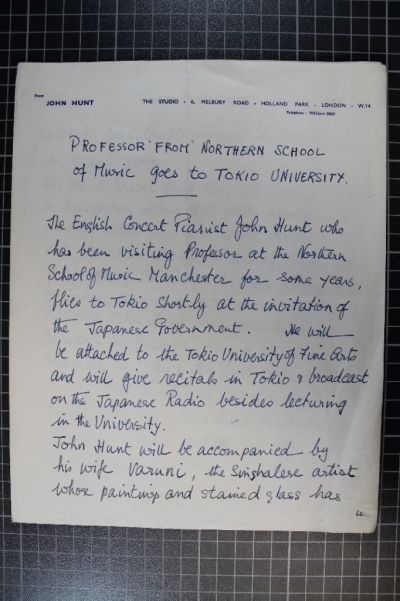 From
JOHN HUNT
THE STUDIO - 6, MELBURY ROAD - HOLLAND PARK - LONDON - W.14
Telephone - WEStern 0869
PROFESSOR FROM NORTHERN SCHOOL
of MUSIC goes to TOKIO UNIVERSITY.
The English Concert Pianist John Hunt who
has been visiting Professor at the Northern
School of Music Manchester for some years,
flies to Tokio shortly at the invitation of
the Japanese Government. He will
be attached to the Tokio University of Fine Arts
and will give recitals in Tokio & broadcast
on the Japanese Radio besides lecturing
in the University.
John Hunt will be accompanied by
his wife Varuni, the Singhalese artist
whose paintings and stained glass has